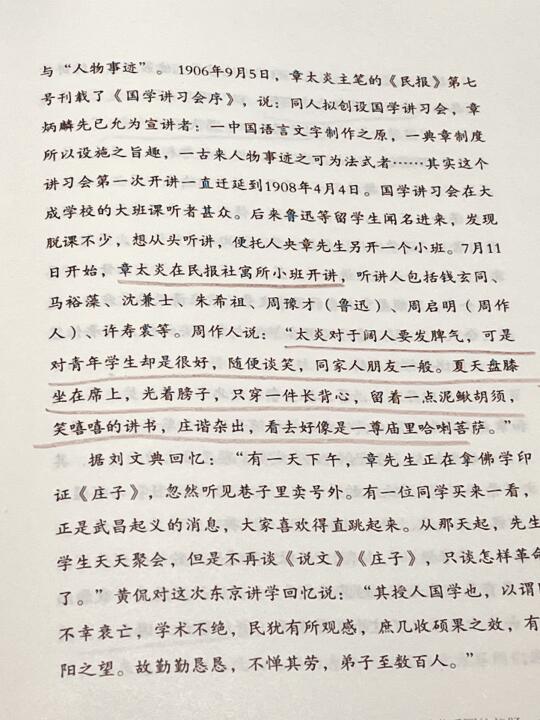 与“人物事迹”。1906年9月5日，章太炎主笔的《民报》第七
号刊载了《国学讲习会序》，说：同人拟创设国学讲习会，章
炳麟先已允为宣讲者：一中国语言文字制作之原，一典章制度
所以设施之旨趣，一古来人物事迹之可为法式者……其实这个
讲习会第一次开讲一直迁延到1908年4月4日。国学讲习会在大
成学校的大班课听者甚众。后来鲁迅等留学生闻名进来，发现
脱课不少，想从头听讲，便托人央章先生另开一个小班。7月11
日开始，章太炎在民报社寓所小班开讲，听讲人包括钱玄同、
马裕藻、沈兼士、朱希祖、周豫才（鲁迅）、周启明（周作
人）、许寿裳等。周作人说：“太炎对于阔人要发脾气，可是
对青年学生却是很好，随便谈笑，同家人朋友一般。夏天盘膝
坐在席上，光着膀子，只穿一件长背心，留着一点泥鳅胡须，
笑嘻嘻的讲书，庄谐杂出，看去好像是一尊庙里哈喇菩萨。”
据刘文典回忆：“有一天下午，章先生正在拿佛学印
证《庄子》，忽然听见巷子里卖号外。有一位同学买来一看，
正是武昌起义的消息，大家喜欢得直跳起来。从那天起，先生
学生天天聚会，但是不再谈《说文》《庄子》，只谈怎样革命
了。”黄侃对这次东京讲学回忆说：“其授人国学也，以谓
不幸衰亡，学术不绝，民犹有所观感，庶几收硕果之效，有
阳之望。故勤勤恳恳，不惮其劳，弟子至数百人。”